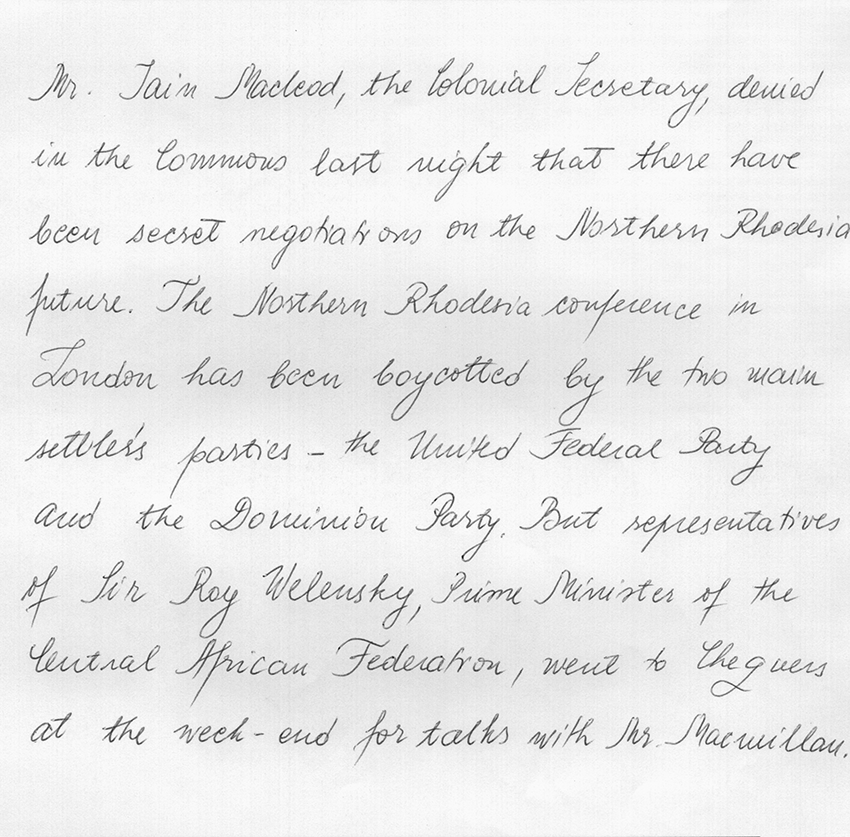 Mr. Iain Macleod, the Colonial Secretary, denied
in the Commons last night that there have
been secret negotiations on the Northern Rhodesia
future. The Northern Rhodesia conference in
London has been boycotted by the two main
settlers parties - the United Federal Party
and the Dominion Party. But representatives
of Sir Roy Welensky, Prime Minister of the
Central African Federation, went to Chequers
at the week-end for talks with Mr. Macmillan.